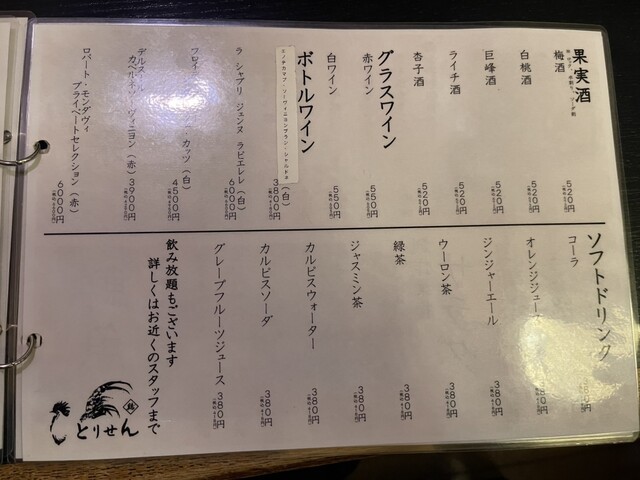 果実酒
梅酒 520円
白桃酒 520円
巨峰酒 520円
ライチ酒 520円
杏子酒 520円
グラスワイン
赤ワイン 550円
白ワイン 550円
ボトルワイン
(白) 3800円
ラ シャブリ ジェンヌ ラピエレレ (白) 6000円
カッツ (白) 4500円
(赤) 3900円
ロバート・モンダヴィ
プライベートセレクション (赤) 6000円
ソフトドリンク
コーラ
オレンジジュース
ジンジャーエール 380円
ウーロン茶 380円
緑茶 380円
ジャスミン茶 380円
カルピスウォーター 380円
カルピスソーダ 380円
グレープフルーツジュース 380円
飲み放題もございます
詳しくはお近くのスタッフまで
とりせん